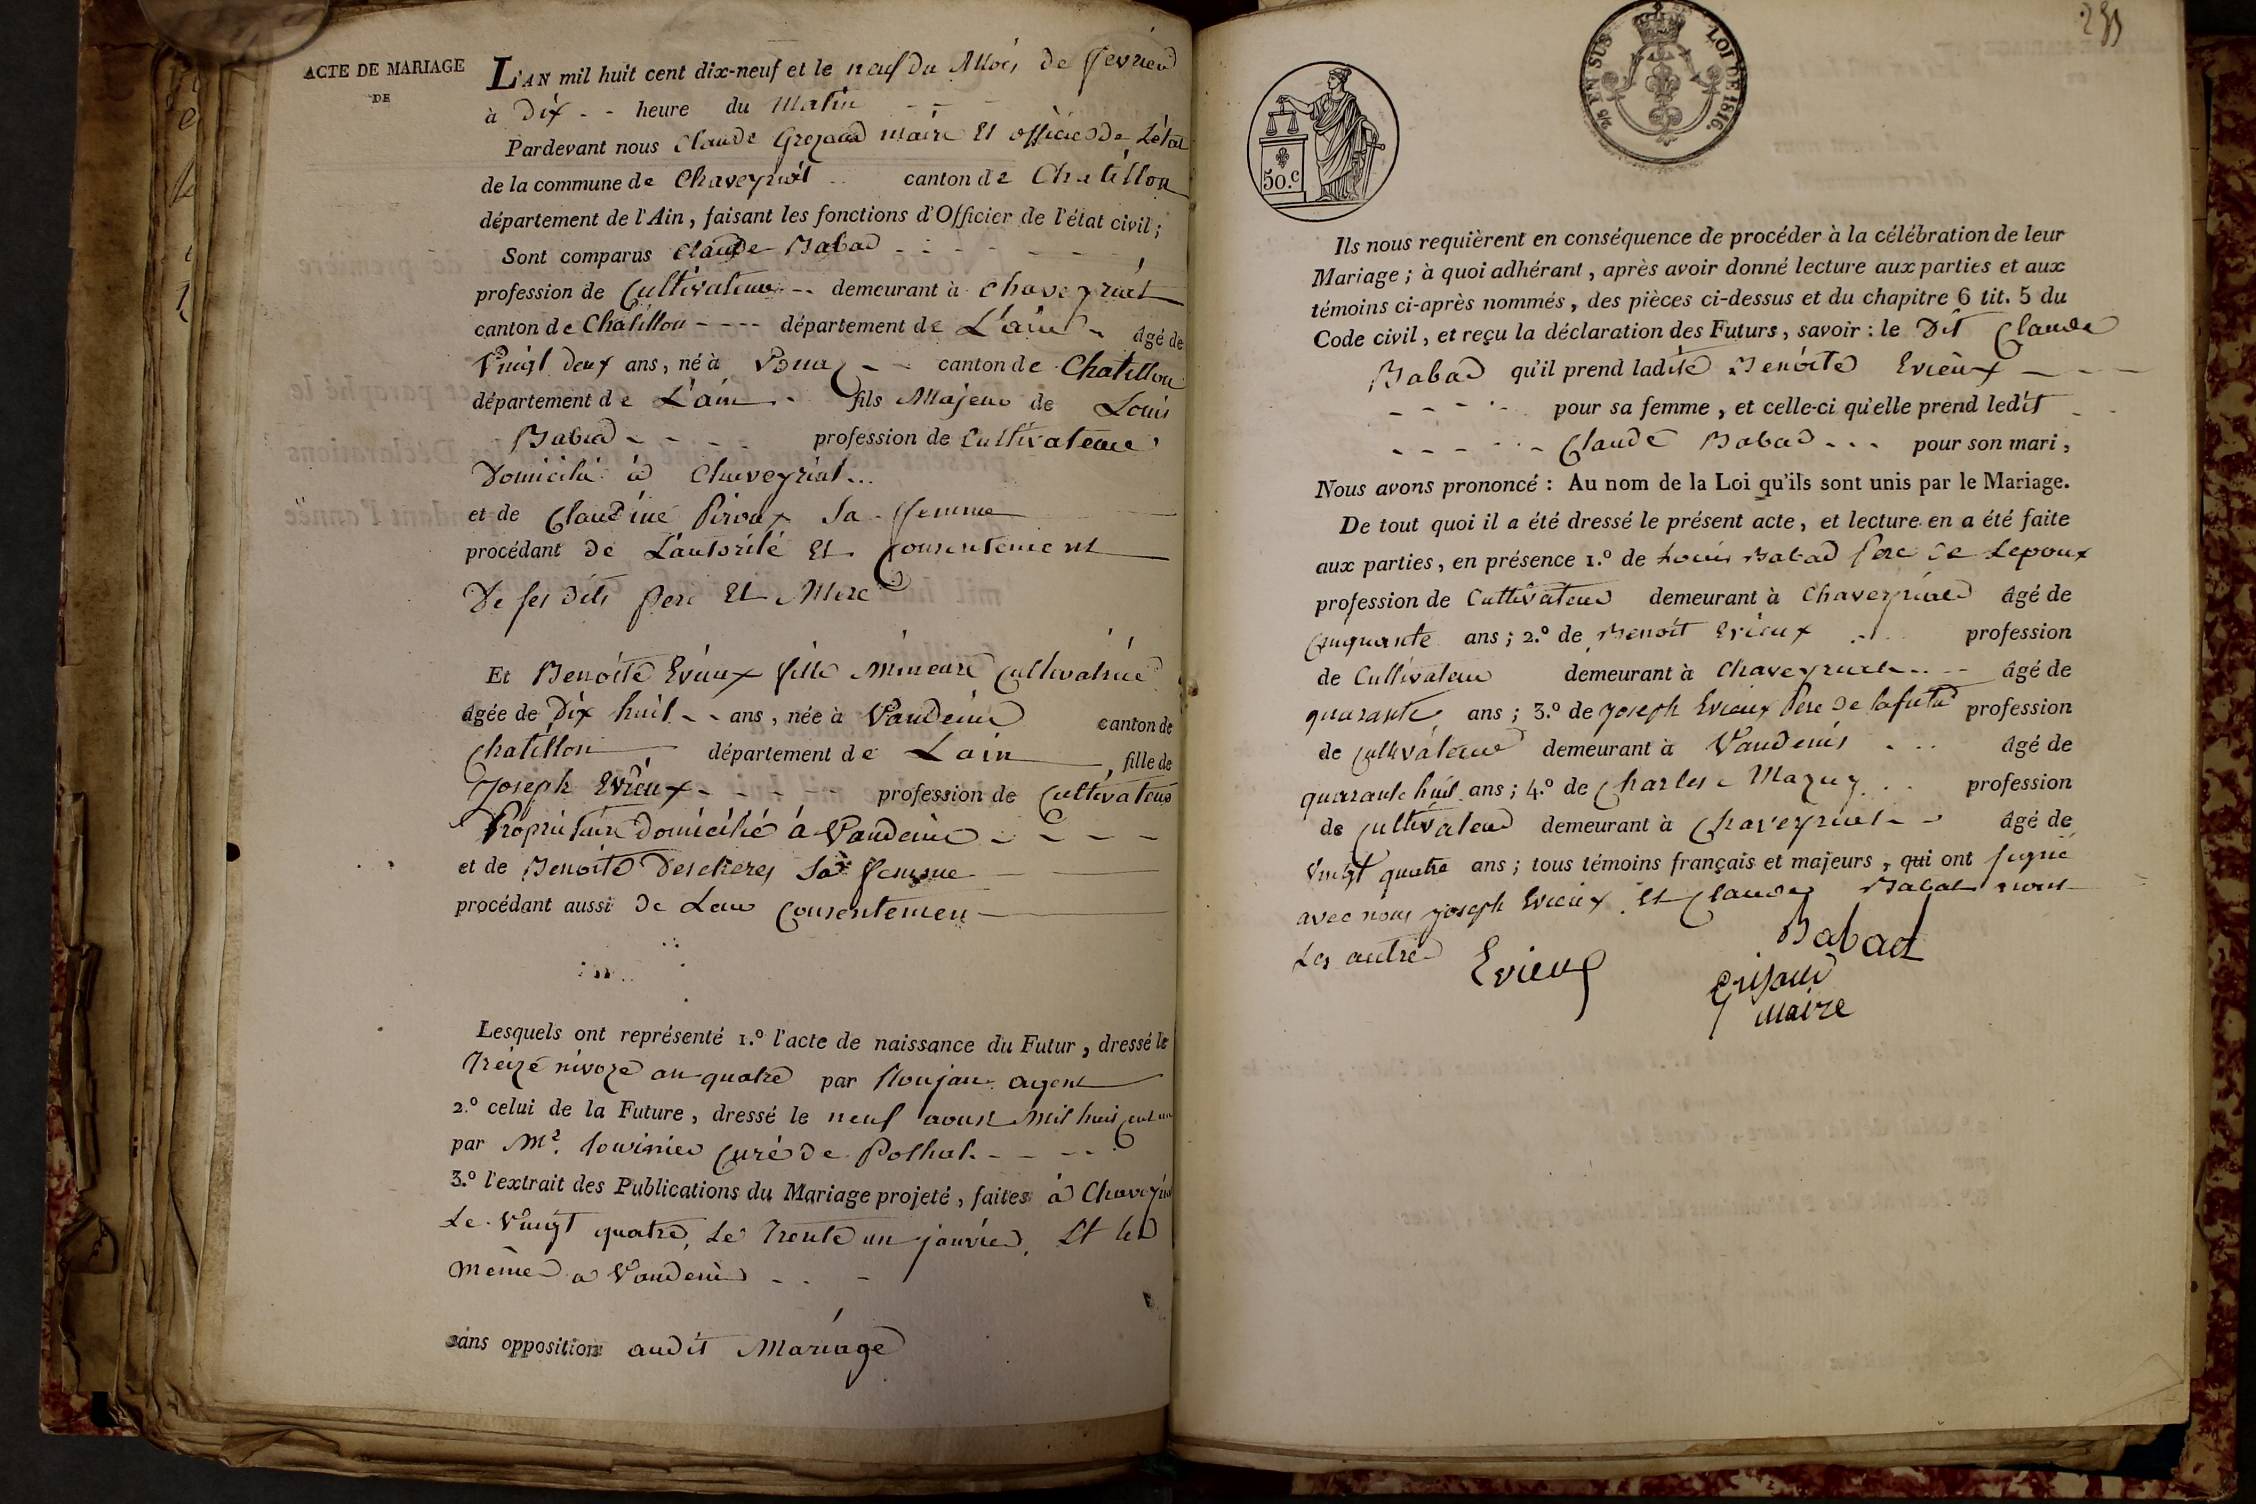 ACTE DE MARIAGE
DE
L'AN mil huit cent dix-neuf et le neuf du Mois de fevrier
à Dix - - heure du Matin - - -
Pardevant nous Claude maire Et officier de L'état
de la commune de Chaveyriat canton de Chatillon
département de l'Ain, faisant les fonctions d'Officier de l'état civil;
Sont comparus Claude Babad - - - -
profession de Cultivateur -- demeurant à Chaveyriat
canton de Chatillon - - - - département de L'ain - âgé de
Vingt deux ans, né à - - canton de Chatillon
département de L'ain - fils Majeur de Louis
Babad - - - - profession de Cultivateur
Domicilié à Chaveyriat...
et de Claudine Piroux Sa femme
procédant de L'autorité Et Consentement
De ses dits pere Et Mere
Et Benoite Evieux fille mineure Cultivatrice
âgée de Dix huit - - ans, née à Vandeins canton de
Chatillon département de Lain, fille de
Joseph Evieux - - - - - profession de Cultivateur
Propriétaire domicilié à Vandeins - - - -
et de Benoite Sa femme
procédant aussi de Leur Consentemen
Lesquels ont représenté 1.º l'acte de naissance du Futur, dressé le
Treize nivoze an quatre par agent
2.º celui de la Future, dressé le neuf aoust mil huit cent un
par Mr. curé de Polliat - - - - -
3.º l'extrait des Publications du Mariage projeté, faites à
Le Vingt quatre, Le Trente un janvier, Et les
mème a Vandeins - . -
sans opposition audit Mariage
233
25 EN SUS LOI DE 1816.
50.c
Ils nous requièrent en conséquence de procéder à la célébration de leur
Mariage; à quoi adhérant, après avoir donné lecture aux parties et aux
témoins ci-après nommés, des pièces ci-dessus et du chapitre 6 tit. 5 du
Code civil, et reçu la déclaration des Futurs, savoir: le Dit Claude
Babad qu'il prend ladite Benoite Evieux - - -
- - - - pour sa femme, et celle-ci qu'elle prend ledit - -
- - - - - Claude Babad - - - pour son mari,
Nous avons prononcé: Au nom de la Loi qu'ils sont unis par le Mariage.
De tout quoi il a été dressé le présent acte, et lecture en a été faite
aux parties, en présence 1.º de Louis Babad pere de Lepoux
profession de Cultivateur demeurant à Chaveyriat âgé de
Cinquante ans; 2.º de Benoit Evieux profession
de Cultivateur demeurant à Chaveyriat - - - âgé de
quarante ans; 3.º de Joseph Evieux Pere de la future profession
de Cultivateur demeurant à Vandeins . . . âgé de
quarante huit ans; 4.º de Charles Mazuy . . profession
de Cultivateur demeurant à Chaveyriat - - âgé de
Vingt quatre ans; tous témoins français et majeurs, qui ont signé
avec nous Joseph Evieux Et Claude Babad non
Les autre
Babad
Evieux
maire